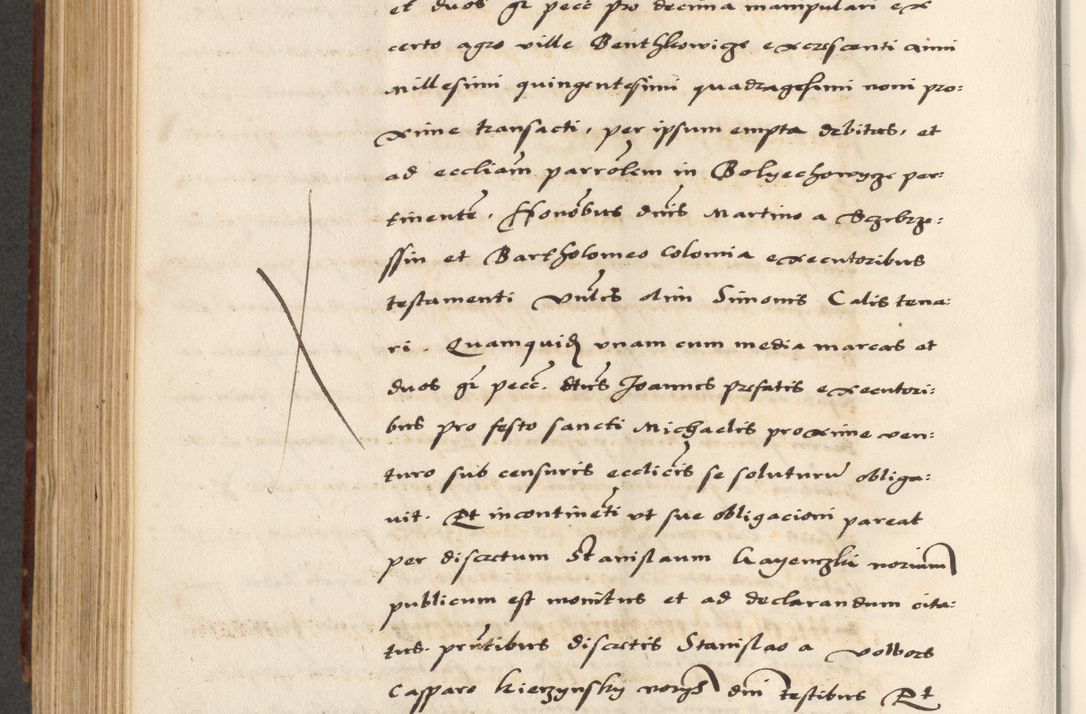 et duos gr pecc pro decima manipulari ex
certo agro ville Benthkowicze excrescenti anni
Millesimi quingentesimi quadragesimi noni pro:
xime transacti, per ipsum empta debitas, et
ad eccliam parrolem in Bolyechowycze per:
tinente, Honobus dnis Martino a Sczebrze:
ssin et Bartholomeo Colonia executoribus
testamenti vnlis olim Simonis Calis tena:
ri. Quamquidem vnam cum media marcas et
duos gr pecc. dtus Joannes prefatis executori:
bus pro festo sancti Michaelis proxime ven:
turo sub censuris ecclicis se soluturu obliga:
uit. Et incontineti vt sue obligacioni pareat
per discretum Stanislaum Kayenczki norium
publicum est monitus et ad declarandum cita:
tus. prntibus discretis Stanislao a Volbors
Casparo Kierzynsky noriis dni testibus Et